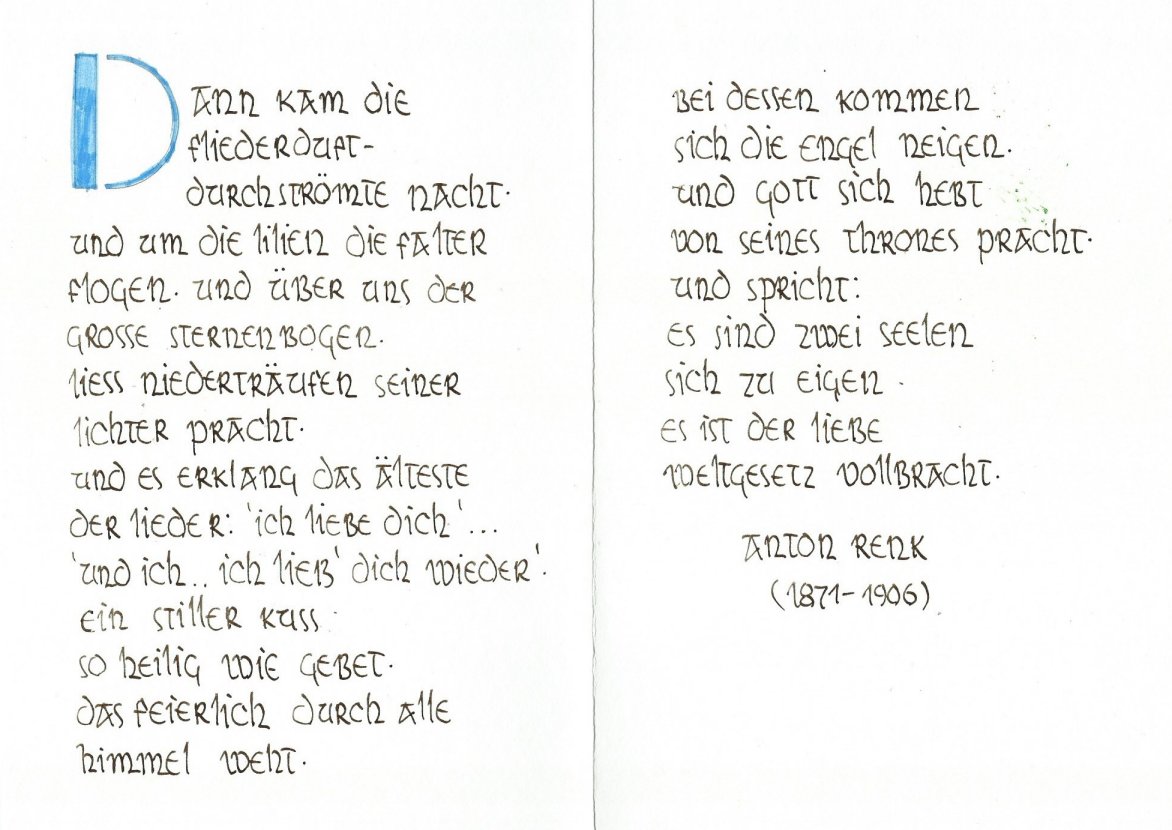 Dann kam die
fliederduft-
durchströmte nacht.
und um die lilien die falter
flogen. und über uns der
grosse sternenbogen.
liess niederträufen seiner
lichter pracht.
und es erklang das älteste
der lieder: 'ich liebe dich'...
'und ich.. ich lieb' dich wieder'.
ein stiller kuss.
so heilig wie gebet.
das feierlich durch alle
himmel weht.
bei dessen kommen
sich die engel neigen.
und gott sich hebt
von seines thrones pracht.
und spricht:
es sind zwei seelen
sich zu eigen.
es ist der liebe
weltgesetz vollbracht.
Anton Renk
(1871-1906)